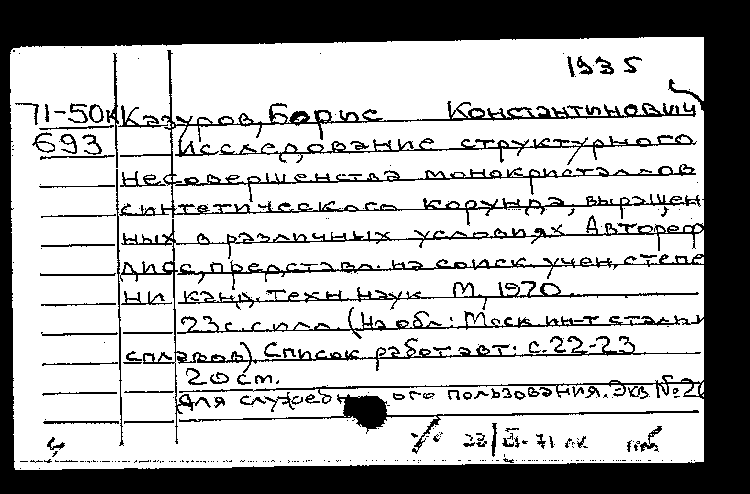 1935
71-50к Казуров, Борис Константинович
693 Исследование структурного
несовершенства монокристаллов
синтетического корунда, выращен-
ных в различных условиях Автореф
дисс, представл. на соиск. учен, степе
ни канд. техн наук М, 1970
23 с. с илл. (На обл: Моск ин-т стали и
сплавов). Список работ авт: с. 22-23
20 см.
Для служебн ого пользования. Экз №20
23/III-71 лк